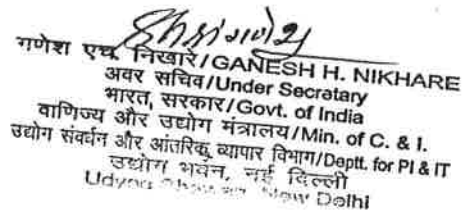 गणेश एच. निखारे/GANESH H. NIKHARE
अवर सचिव/Under Secretary
भारत सरकार/Govt. of India
वाणिज्य और उद्योग मंत्रालय/Min. of C. & I.
उद्योग संवर्धन और आंतरिक व्यापार विभाग/Deptt. for PI & IT
उद्योग भवन, नई दिल्ली
Udyog Bhawan, New Delhi